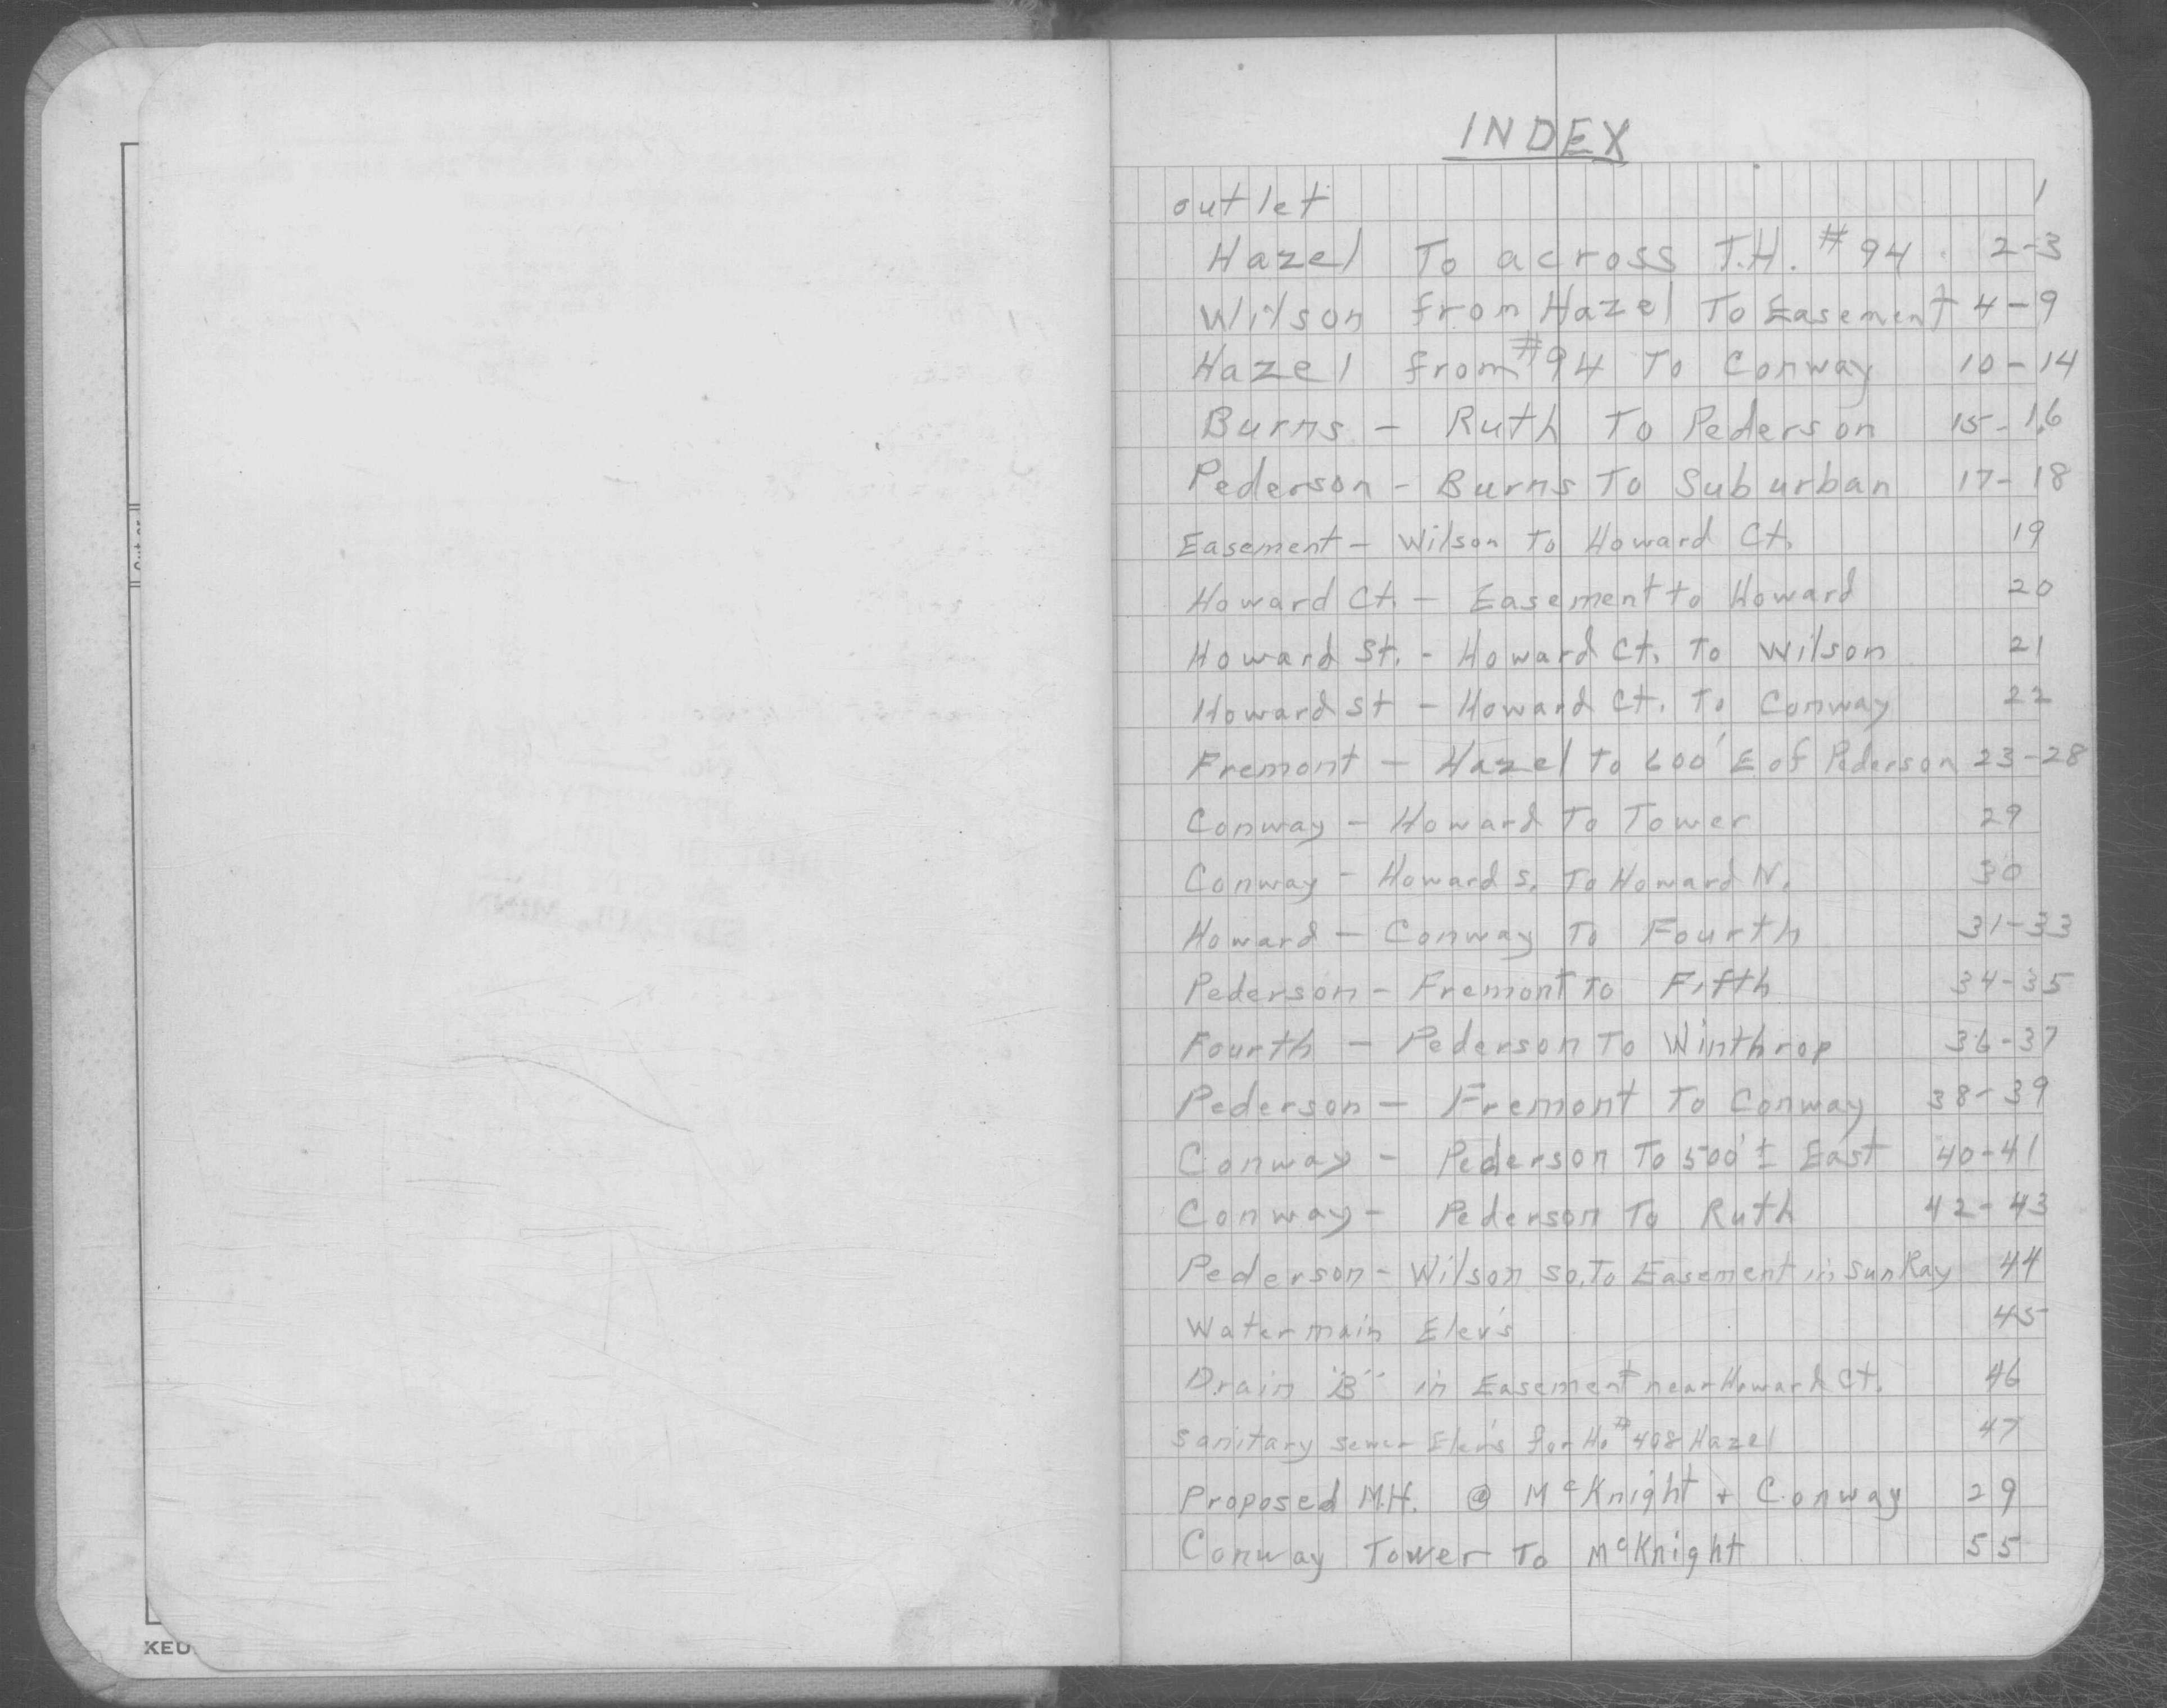 INDEX
outlet 1
Hazel To across T.H. #94 2-3
Wilson from Hazel To Easement 4-9
Hazel from #94 To Conway 10-14
Burns - Ruth To Pederson 15-16
Pederson - Burns To Suburban 17-18
Easement - Wilson To Howard Ct. 19
Howard Ct. - Easement to Howard 20
Howard St. - Howard Ct. To Wilson 21
Howard St - Howard Ct. To Conway 22
Fremont - Hazel To 600' E of Pederson 23-28
Conway - Howard To Tower 29
Conway - Howard S. To Howard N. 30
Howard - Conway To Fourth 31-33
Pederson - Fremont To Fifth 34-35
Fourth - Pederson To Winthrop 36-37
Pederson - Fremont To Conway 38-39
Conway - Pederson To 500' ± East 40-41
Conway - Pederson To Ruth 42-43
Pederson - Wilson So. To Easement in SunRay 44
Watermain Elev's 45
Drain "B" in Easement near Howard Ct. 46
Sanitary sewer Elev's for Ho #408 Hazel 47
Proposed M.H. @ McKnight + Conway 29
Conway Tower To McKnight 55
KEU